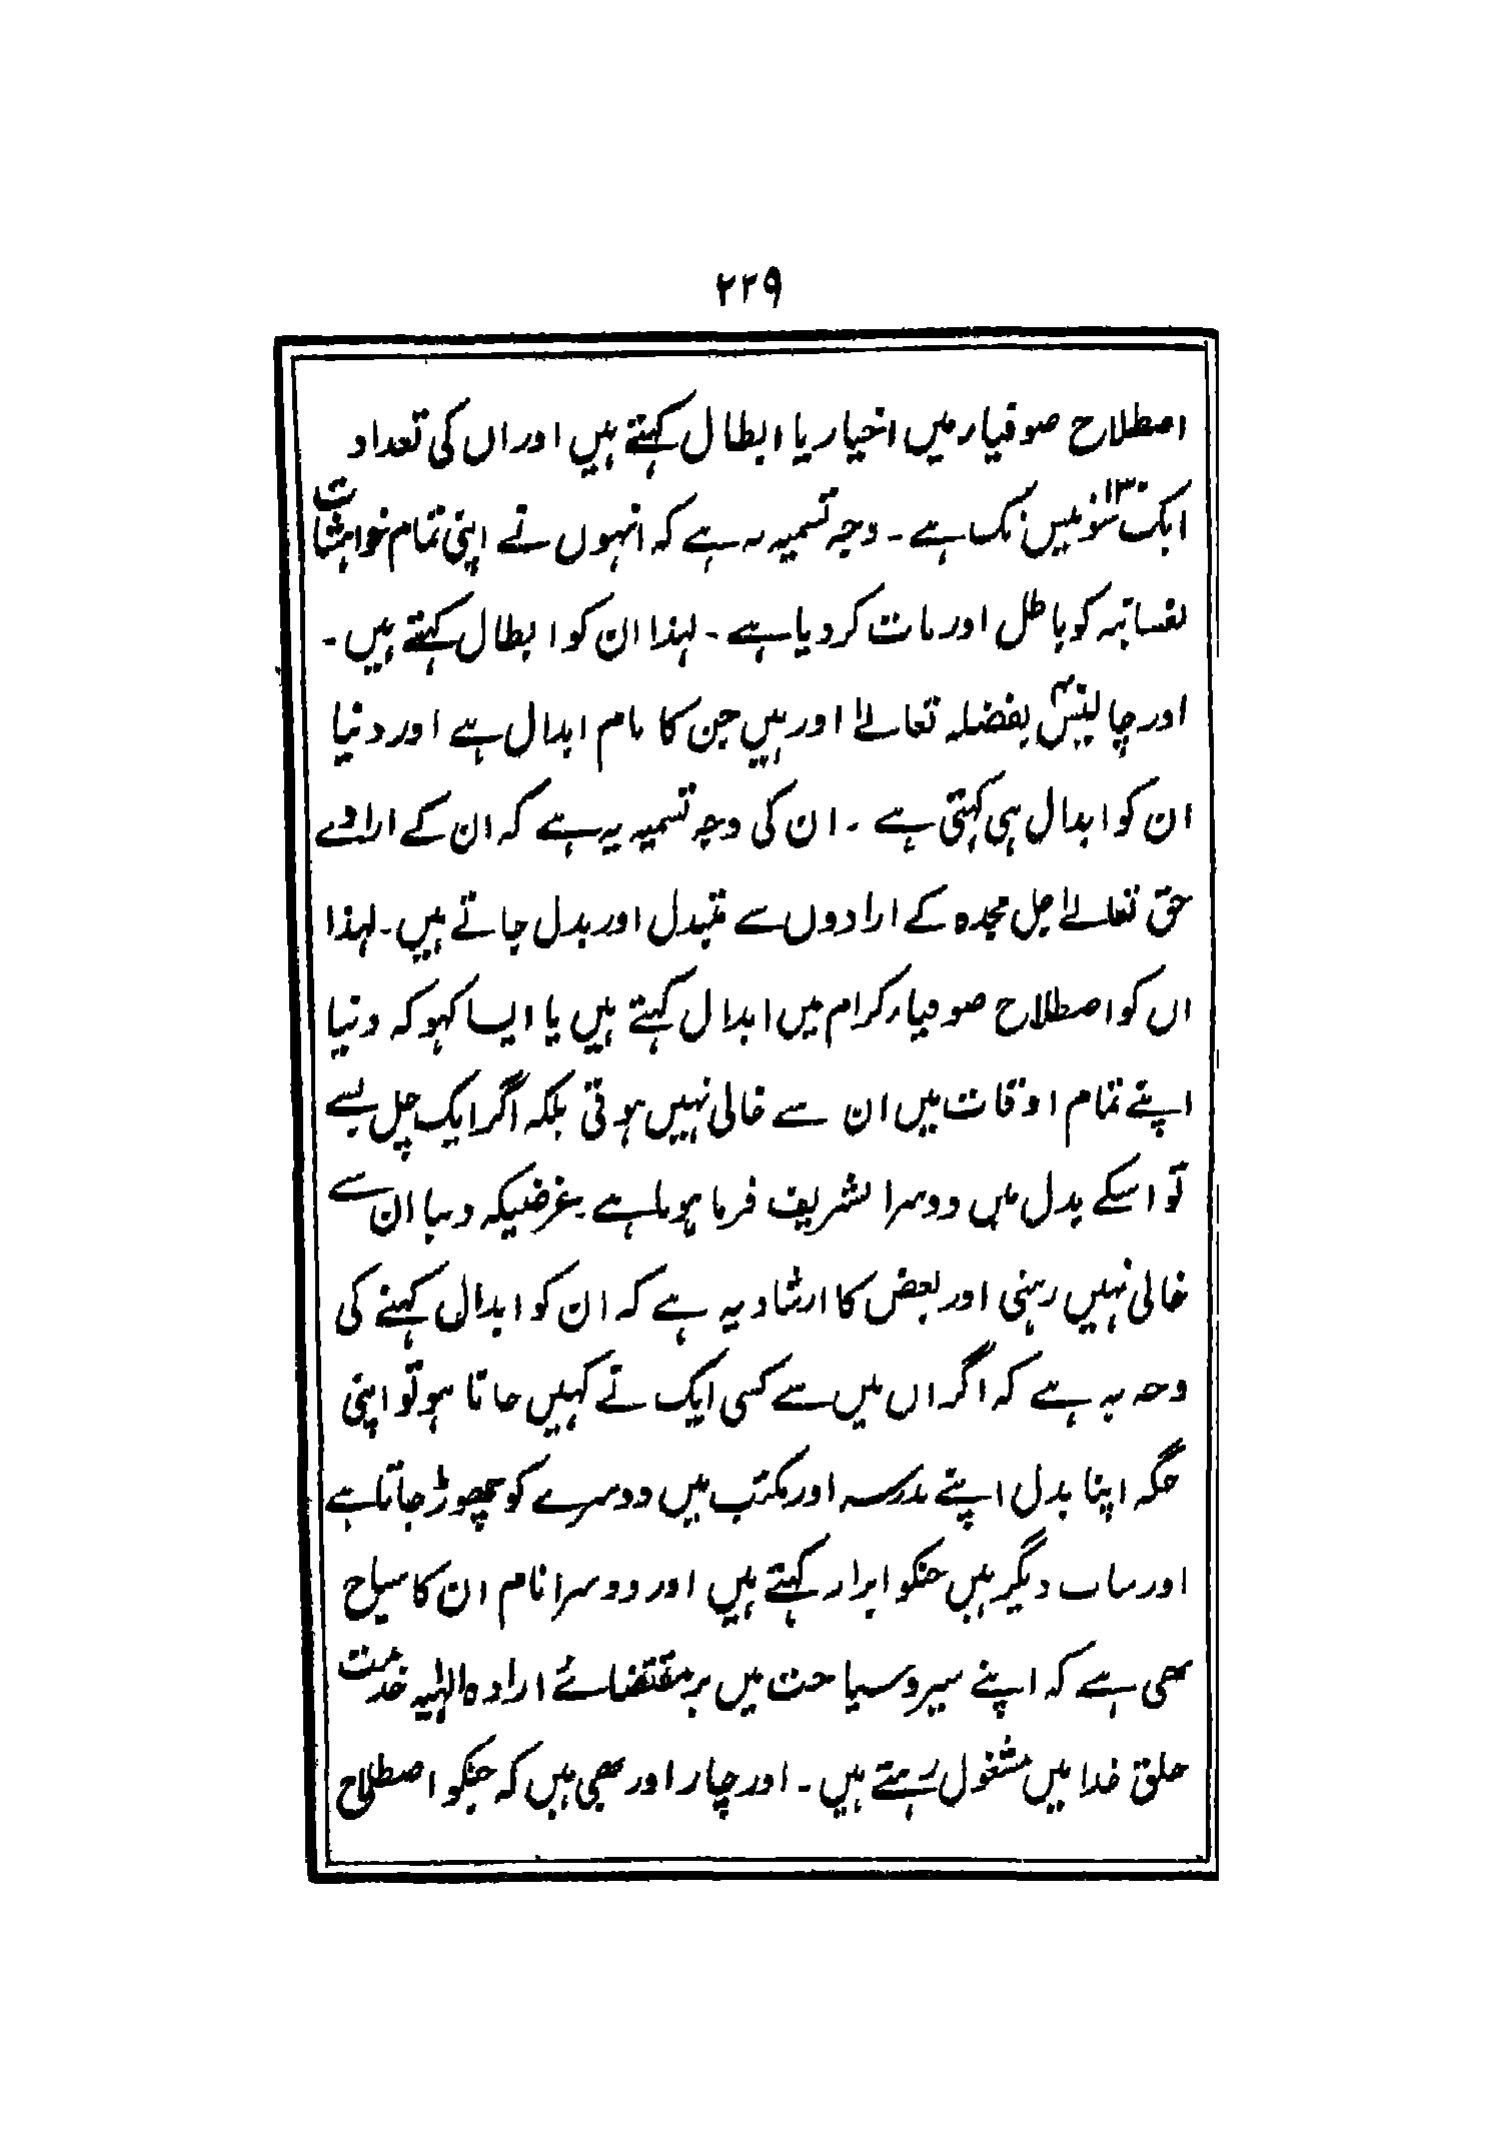 ۲۲۹
اصطلاح صوفیاء میں اخیار یا ابطال کہتے ہیں اور ان کی تعداد
ایک سو تیس ۱۳۰ تک ہے۔ وجہ تسمیہ یہ ہے کہ انہوں نے اپنی تمام خواہشات
نفسانیہ کو باطل اور مات کر دیا ہے۔ لہذا ان کو ابطال کہتے ہیں۔
اور چالیس۴۰ بفضلہ تعالےٰ اور ہیں جن کا نام ابدال ہے اور دنیا
ان کو ابدال ہی کہتی ہے۔ ان کی وجہ تسمیہ یہ ہے کہ ان کے ارادے
حق تعالےٰ جل مجدہ کے ارادوں سے متبدل اور بدل جاتے ہیں۔ لہذا
ان کو اصطلاح صوفیاء کرام میں ابدال کہتے ہیں یا ایسا کہو کہ دنیا
اپنے تمام اوقات میں ان سے خالی نہیں ہوتی بلکہ اگر ایک چل بسے
تو اسکے بدل میں دوسرا تشریف فرما ہوتا ہے۔ غرضیکہ دنیا ان سے
خالی نہیں رہتی اور بعض کا ارشاد یہ ہے کہ ان کو ابدال کہنے کی
وجہ یہ ہے کہ اگر ان میں سے کسی ایک نے کہیں جانا ہو تو اپنی
جگہ اپنا بدل اپنے مدرسہ اور مکتب میں دوسرے کو چھوڑ جاتا ہے
اور سات دیگر ہیں جنکو ابرار کہتے ہیں اور دوسرا نام ان کا سیاح
بھی ہے کہ اپنے سیر و سیاحت میں بر مقتضائے ارادہ الہٰیہ خدمت
خلق خدا میں مشغول رہتے ہیں۔ اور چار اور بھی ہیں کہ جنکو اصطلاح